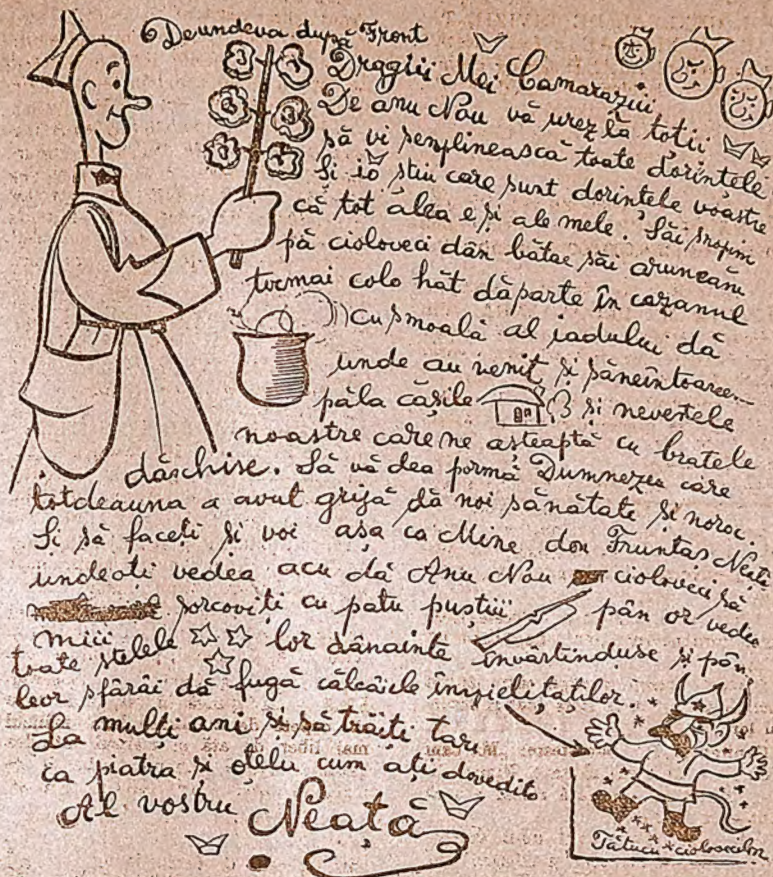 Deundeva după Front
Dragii Mei Camarazii
De anu Nou vă urez la toții
să vi senplinească toate dorințele
Și io știu care sunt dorințele voastre
că tot ălea e și ale mele. Săi snopim
pă cioloveci dân bătae săi aruncăm
tocmai colo hăt dăparte în cazanul
cu smoală al iadului dă
unde au venit și săneîntoarcem
păla căsile și nevestele
noastre care ne așteaptă cu brațele
dăschise. Să vă dea pormă Dumnezeu care
totdeauna a avut grijă dă noi sănătate și noroc.
Și să faceți și voi așa ca Mine don Fruntaș Neață
undeoți vedea acu dă Anu Nou cioloveci să
miii sorcoviți cu patu puștii pân or vedea
toate stelele lor dânainte învârtinduse și pân
leor sfârâi dă fugă călcâiele înpielițaților.
La mulți ani și să trăiți tari
ca piatra și oțelu cum ați dovedito
Al vostru Neață
Tătucu cioloveciilor